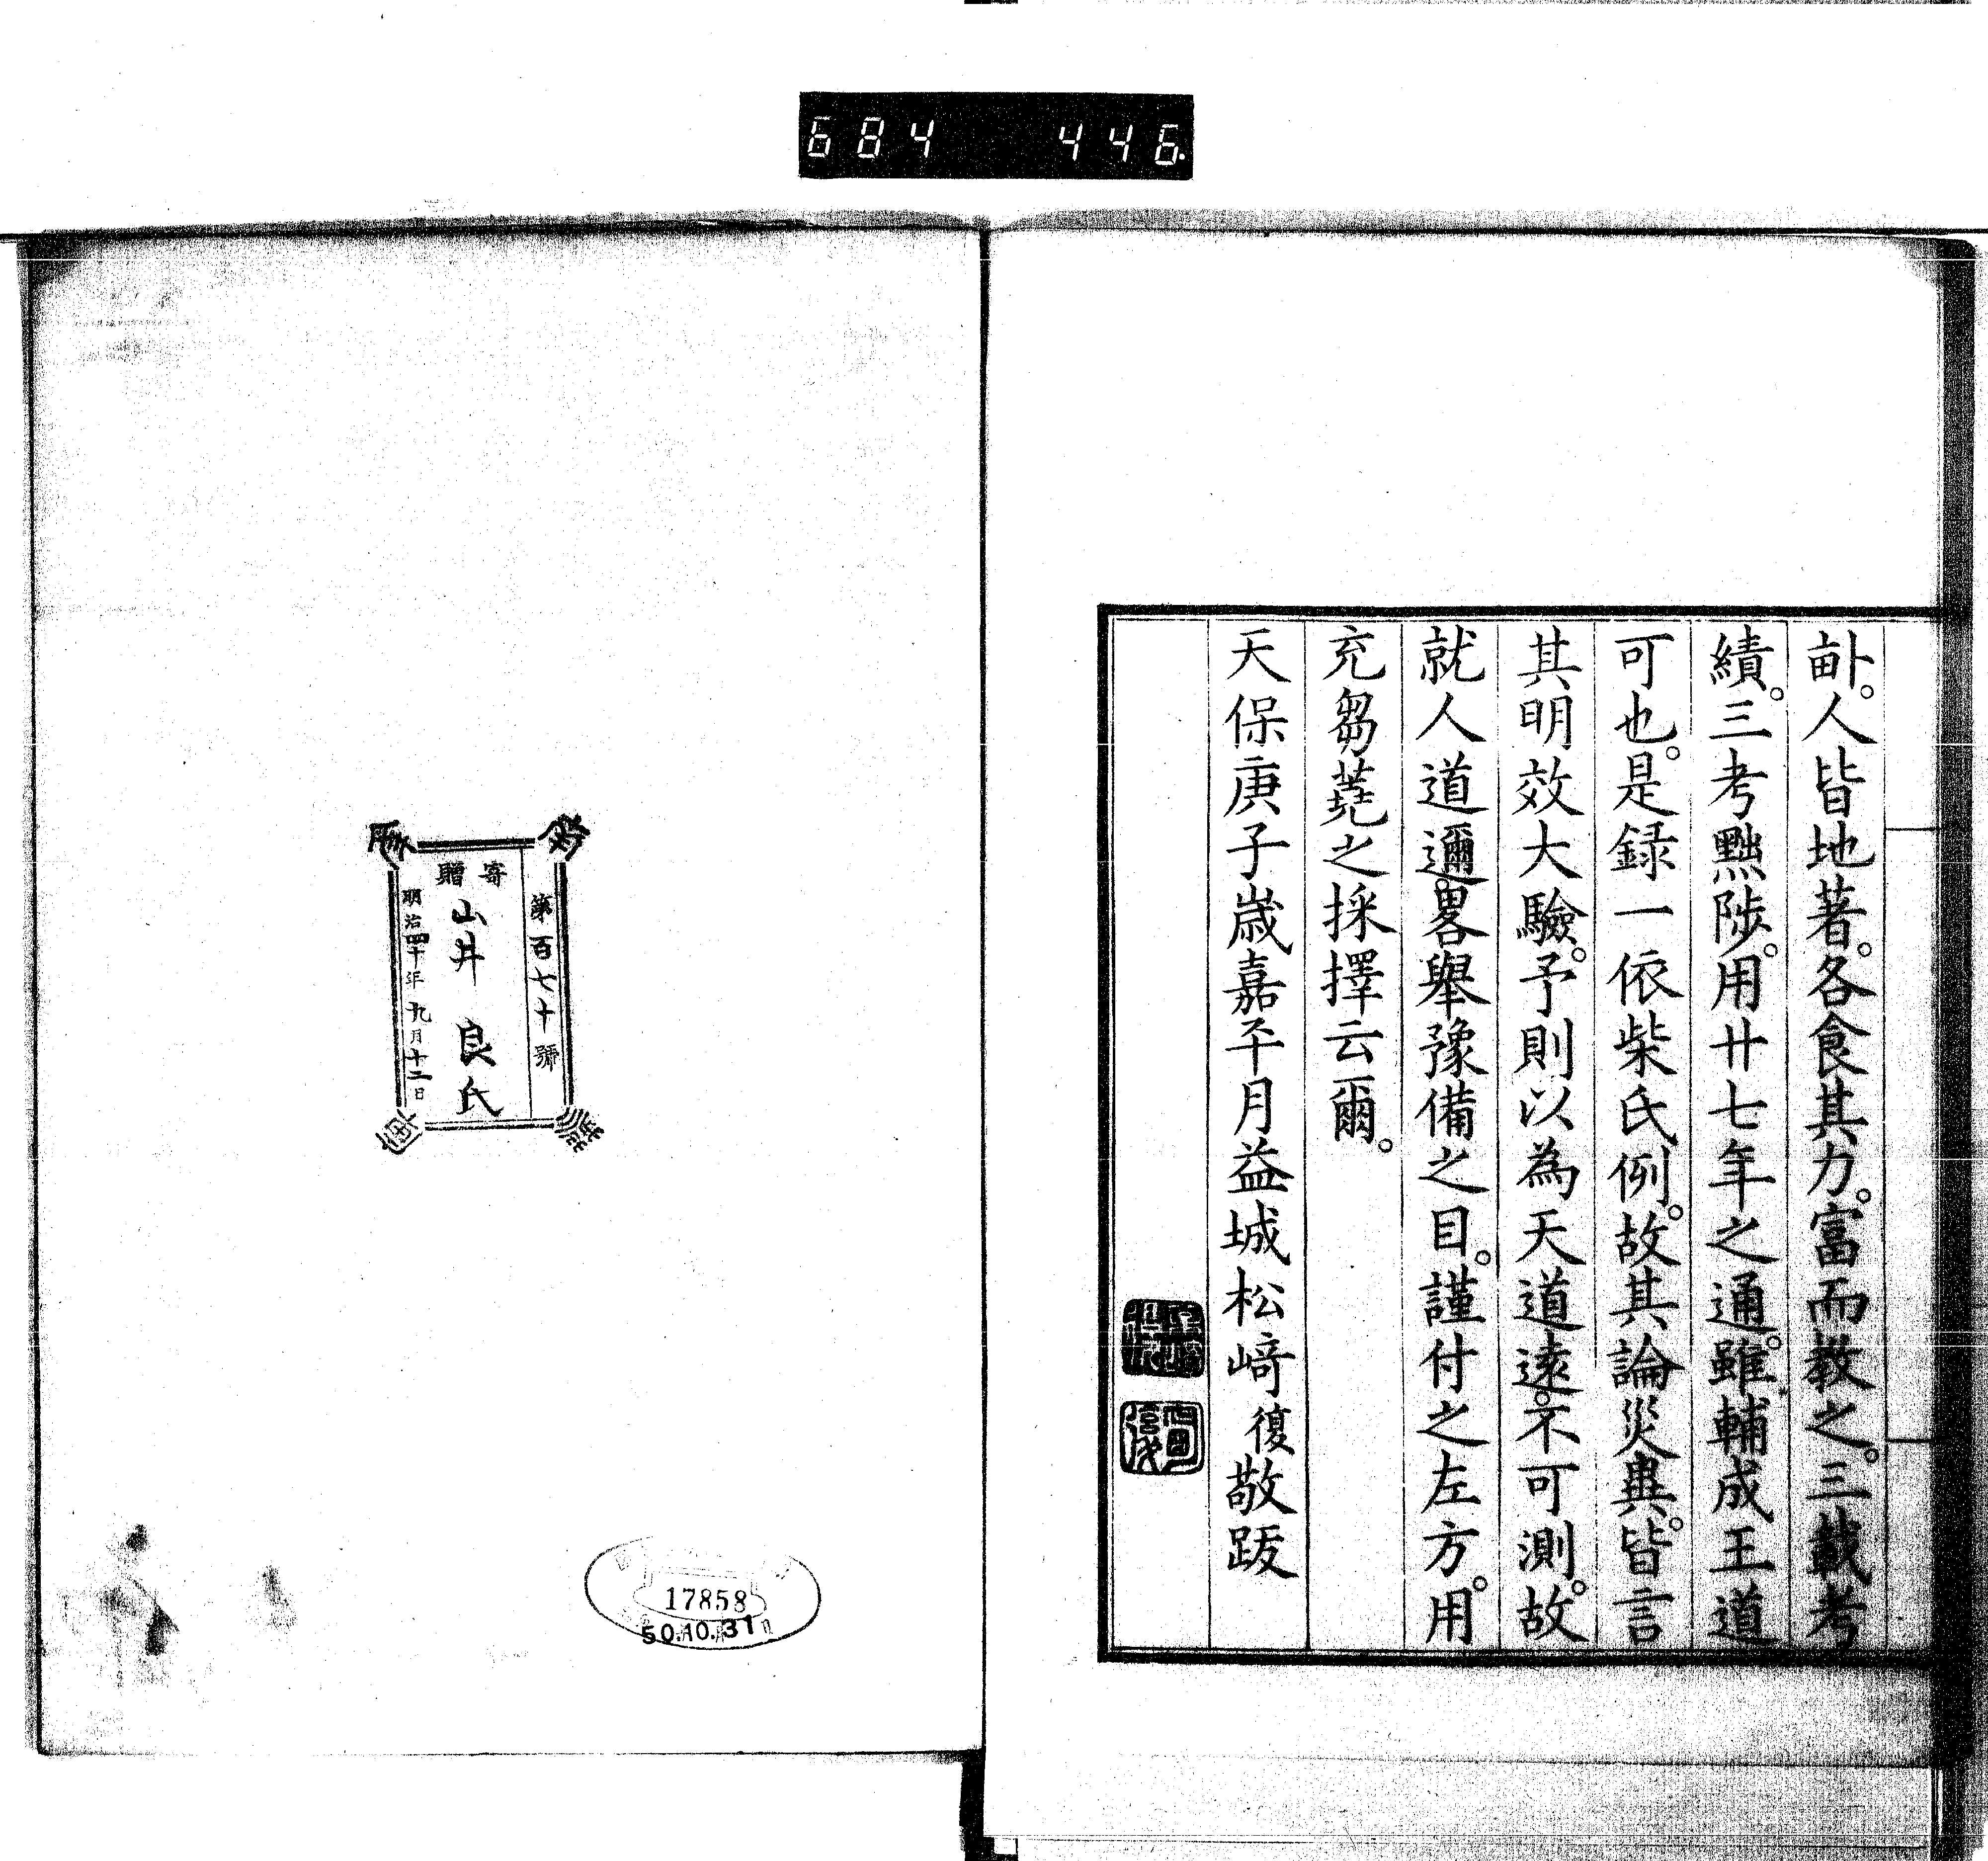 684 446.
畆。人皆地著。各食其力。富而教之。三載考
績。三考黜陟。用廿七年之通。雖輔成王道
可也。是録一依柴氏例。故其論災異。皆言
其明效大驗。予則以為天道遠。不可測。故
就人道邇。畧舉豫備之目。謹付之左方。用
充芻蕘之採擇云爾。
天保庚子嵗嘉平月益城松﨑復敬跋
第百七十號
寄贈
山井良氏
明治四十年九月十二日
17858
50.10.31